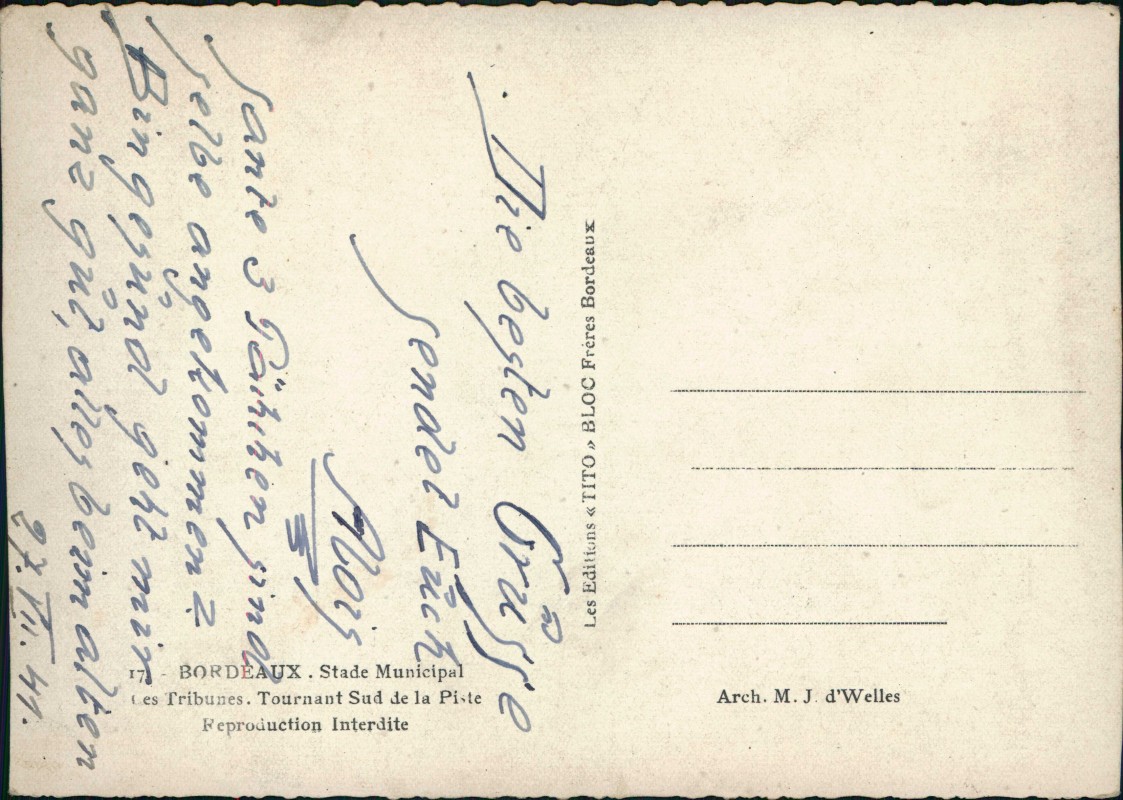 Die besten Grüsse
sendet Euch
Alois
Sante 3 Päckchen sind
selbe angekommen?
Bin gesund geht mir
ganz gut, alles beim alten
27.VII.41.
Les Editions « TITO » BLOC Frères Bordeaux
BORDEAUX . Stade Municipal
Les Tribunes. Tournant Sud de la Piste
Reproduction Interdite
Arch. M. J. d'Welles